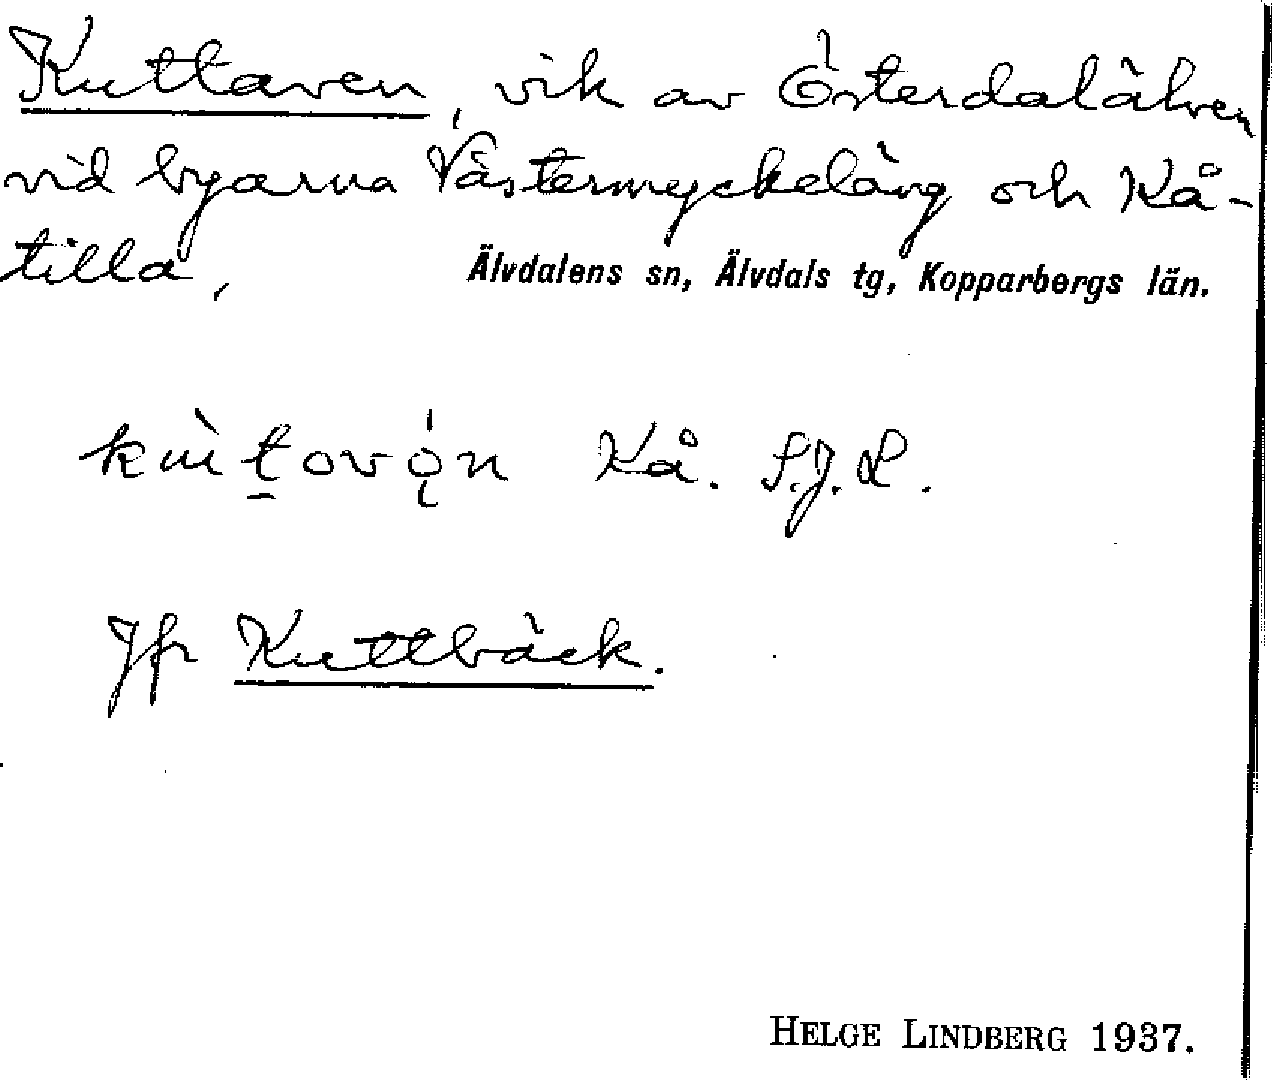 Kuttaven, vik av Österdalälven
vid byarna Västermyckeläng och Kå-
tilla,
Älvdalens sn, Älvdals tg, Kopparbergs län.
Kå. S.J.L.
Jfr Kuttbäck.
HELGE LINDBERG 1937.